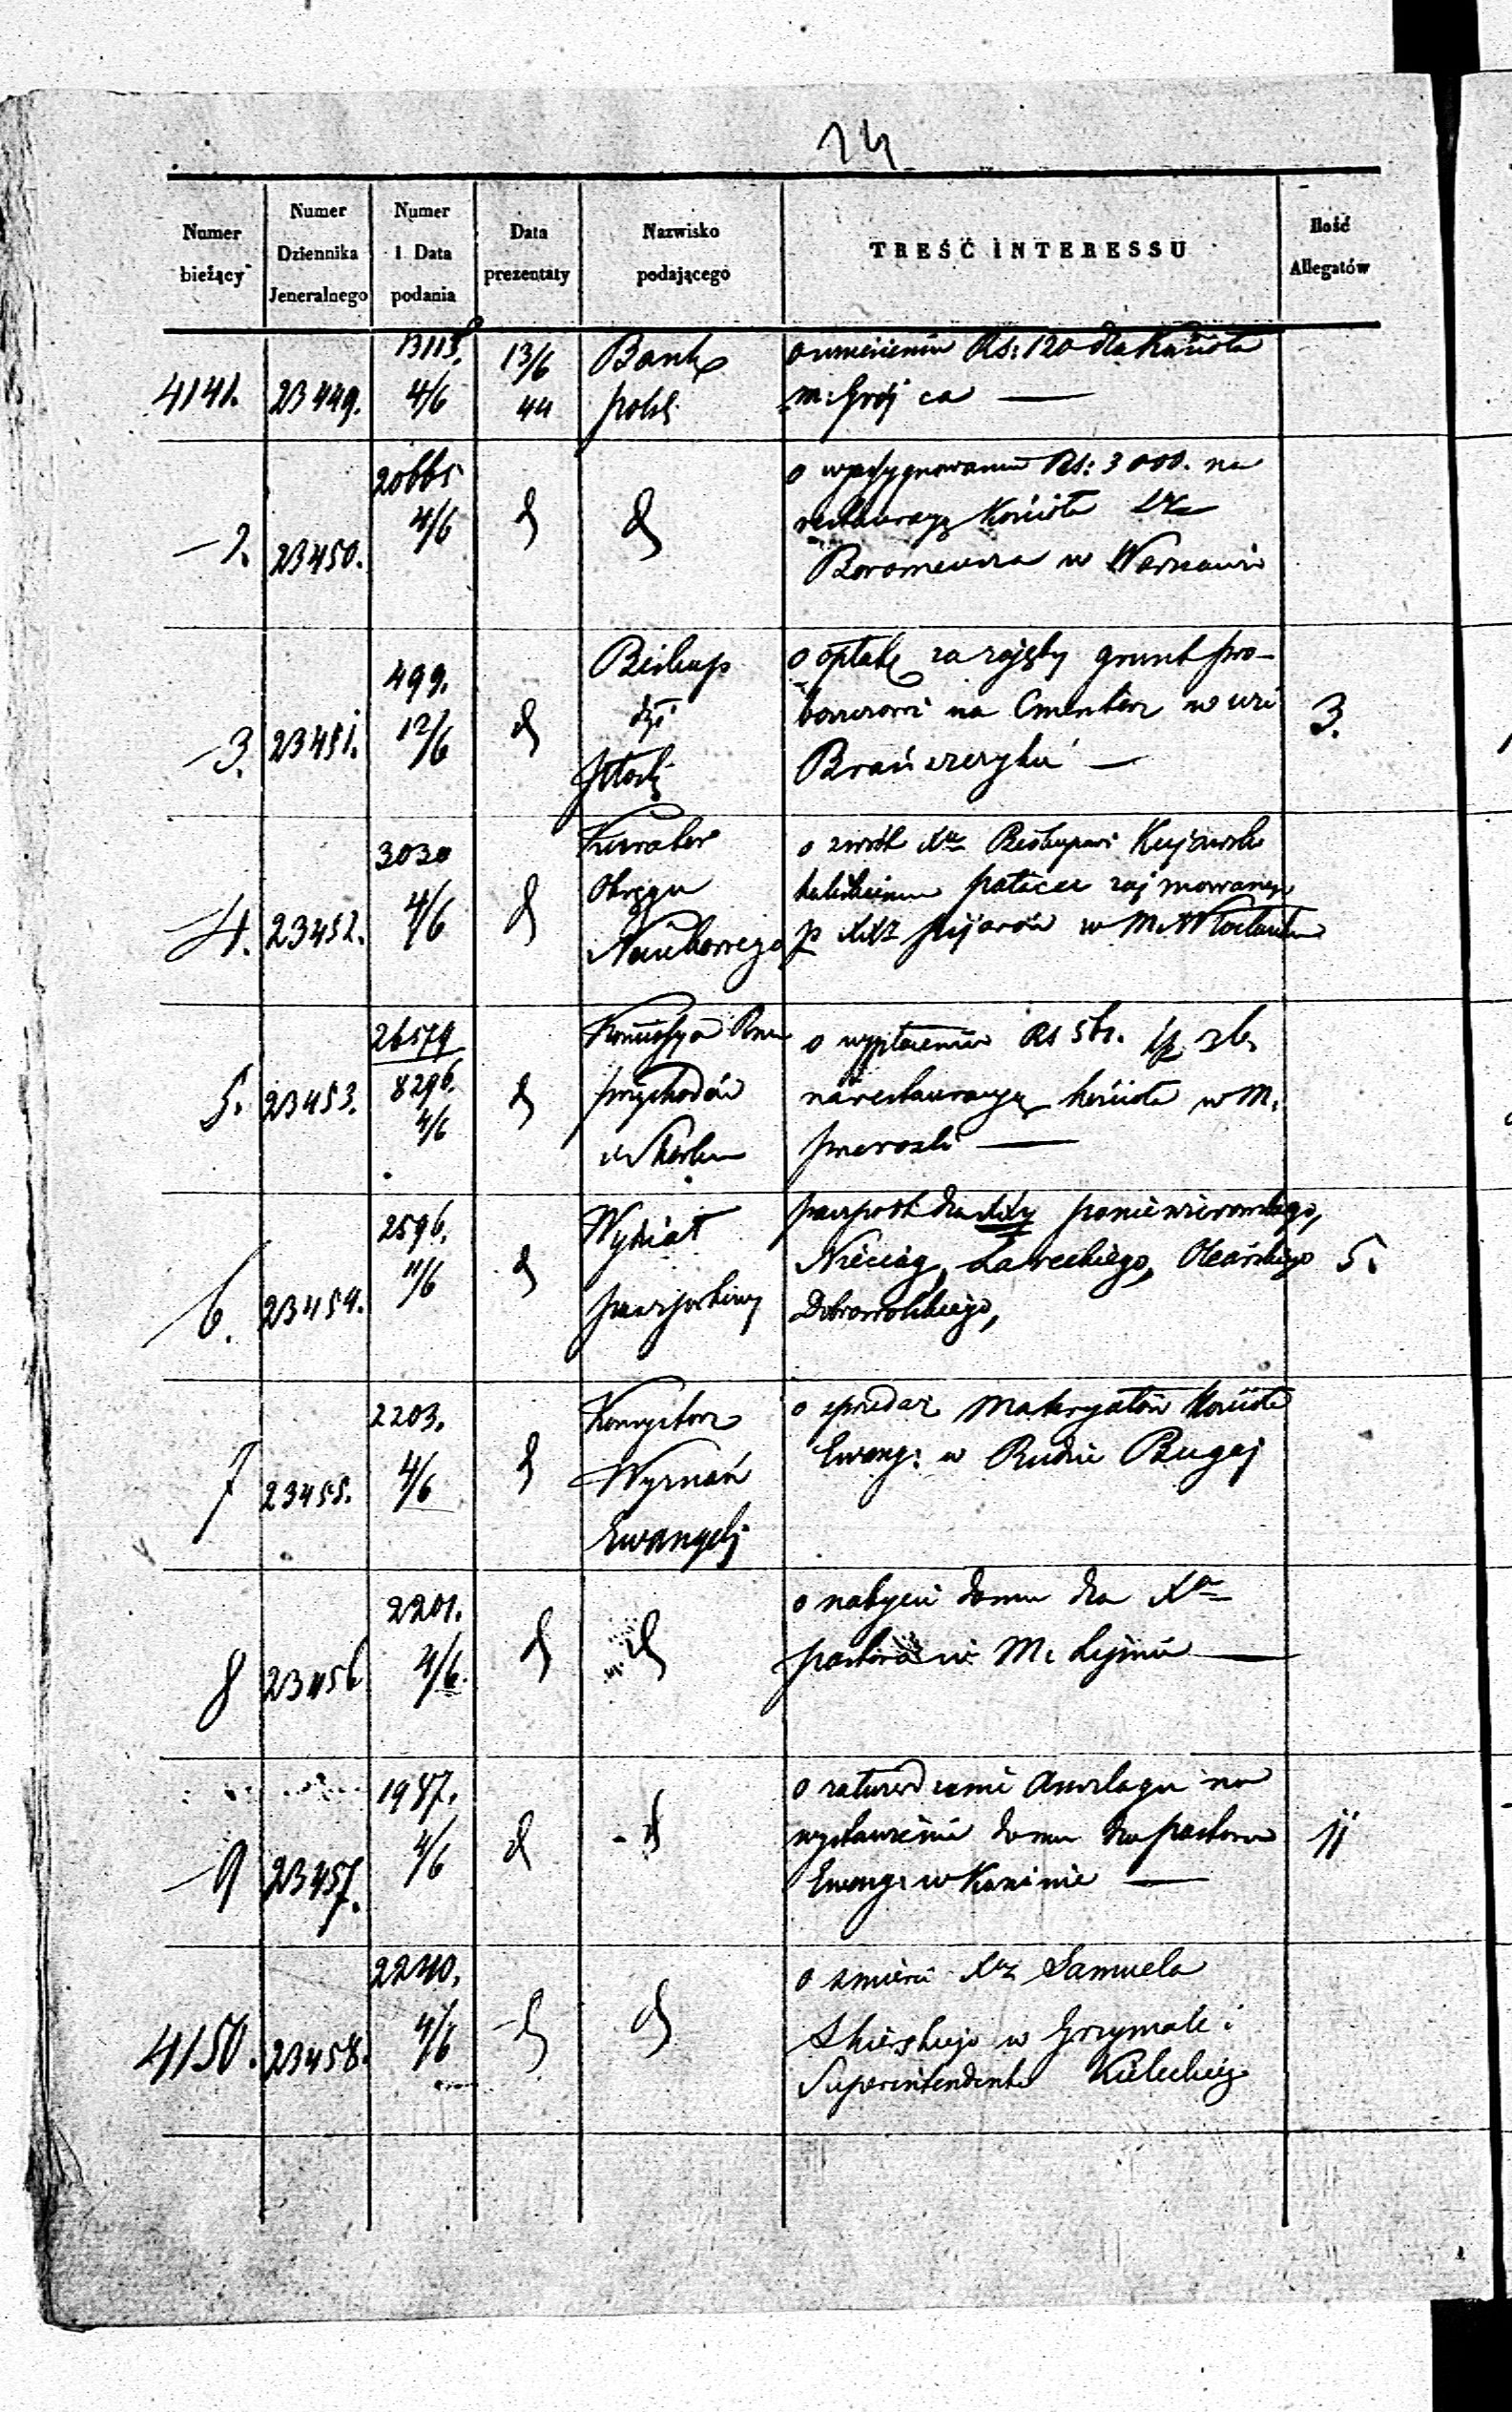 14
Numer bieżący
Numer Dziennika Jeneralnego
Numer i Data podania
Data prezentaty
Nazwisko podającego
TREŚĆ INTERESSU
Ilość Allegatów
4141. 23449. 13118. 4/6 13/6 44 Bank polsk
o umieszeniu Rs: 120 dla Kościoła
m: Grójca
2. 23450. 20665 4/6 d d
o wyasygnowaniu Rs: 3000. na
restauracyą Kościoła
Boromeusza w Warszawie
3. 23451. 499. 12/6 d Biskup dyi płock
o opłatę za zajęty grunt pro-
boszczowi na Cmentarz w wsi
Brańszczyku
3.
4. 23452. 3030 4/6 d Kurator Okręgu Naukowego
o zwrót Xu Biskupowi Kujawsko
kaliskiemu pałacu zajmowanego
p XXz pijarów w M. Włocławku
5. 23453. 26579 8296. 4/6 d Kommissya Rzu przychodów i Skarbu
o wypłacenie Rs
na restauracyą kościoła w M.
przerośli
6. 23454. 2596. 11/6 d Wydział paszportowy
paszport dla poniewierowskiego,
Nieciąg, Zareckiego, Olearskiego
Dobrowolskiego,
5.
7 23455. 2203. 4/6 d Konsystorz Wyznań Ewangelj
o sprzedaż Materyałów Kościoła
Ewang: w Rudzie Bugaj
8 23456 2201. 4/6 d d
o nabycie domu dla Xa
pastora w M:
9 23457. 1947. 4/6 d d
o zatwierdzenie Anszlagu na
wystawienie domu dla pastora
Ewang: w Koninie
11
4150. 23458. 2240. 4/6 d d
o śmierci Xdz Samuela
Skierskiego w Grzymale i
Superintendenta Kieleckiego